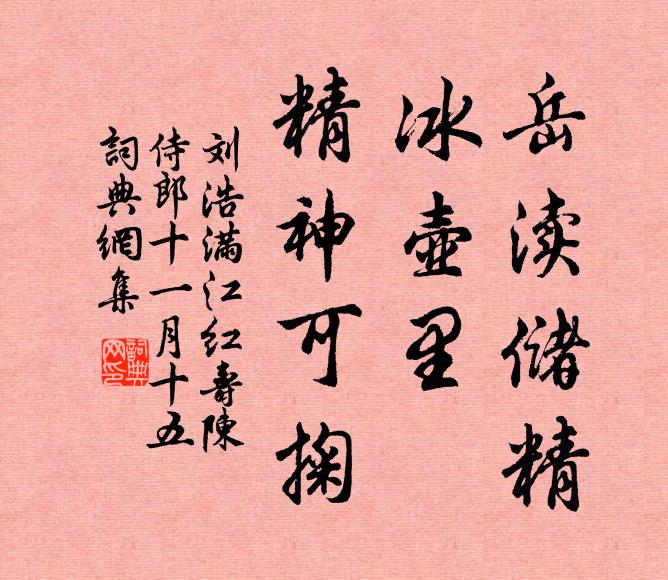 岳渎储精
冰壶里
精神可掬
刘浩满江红寿陳
侍郎十一月十五
詞典網集
詞典网印